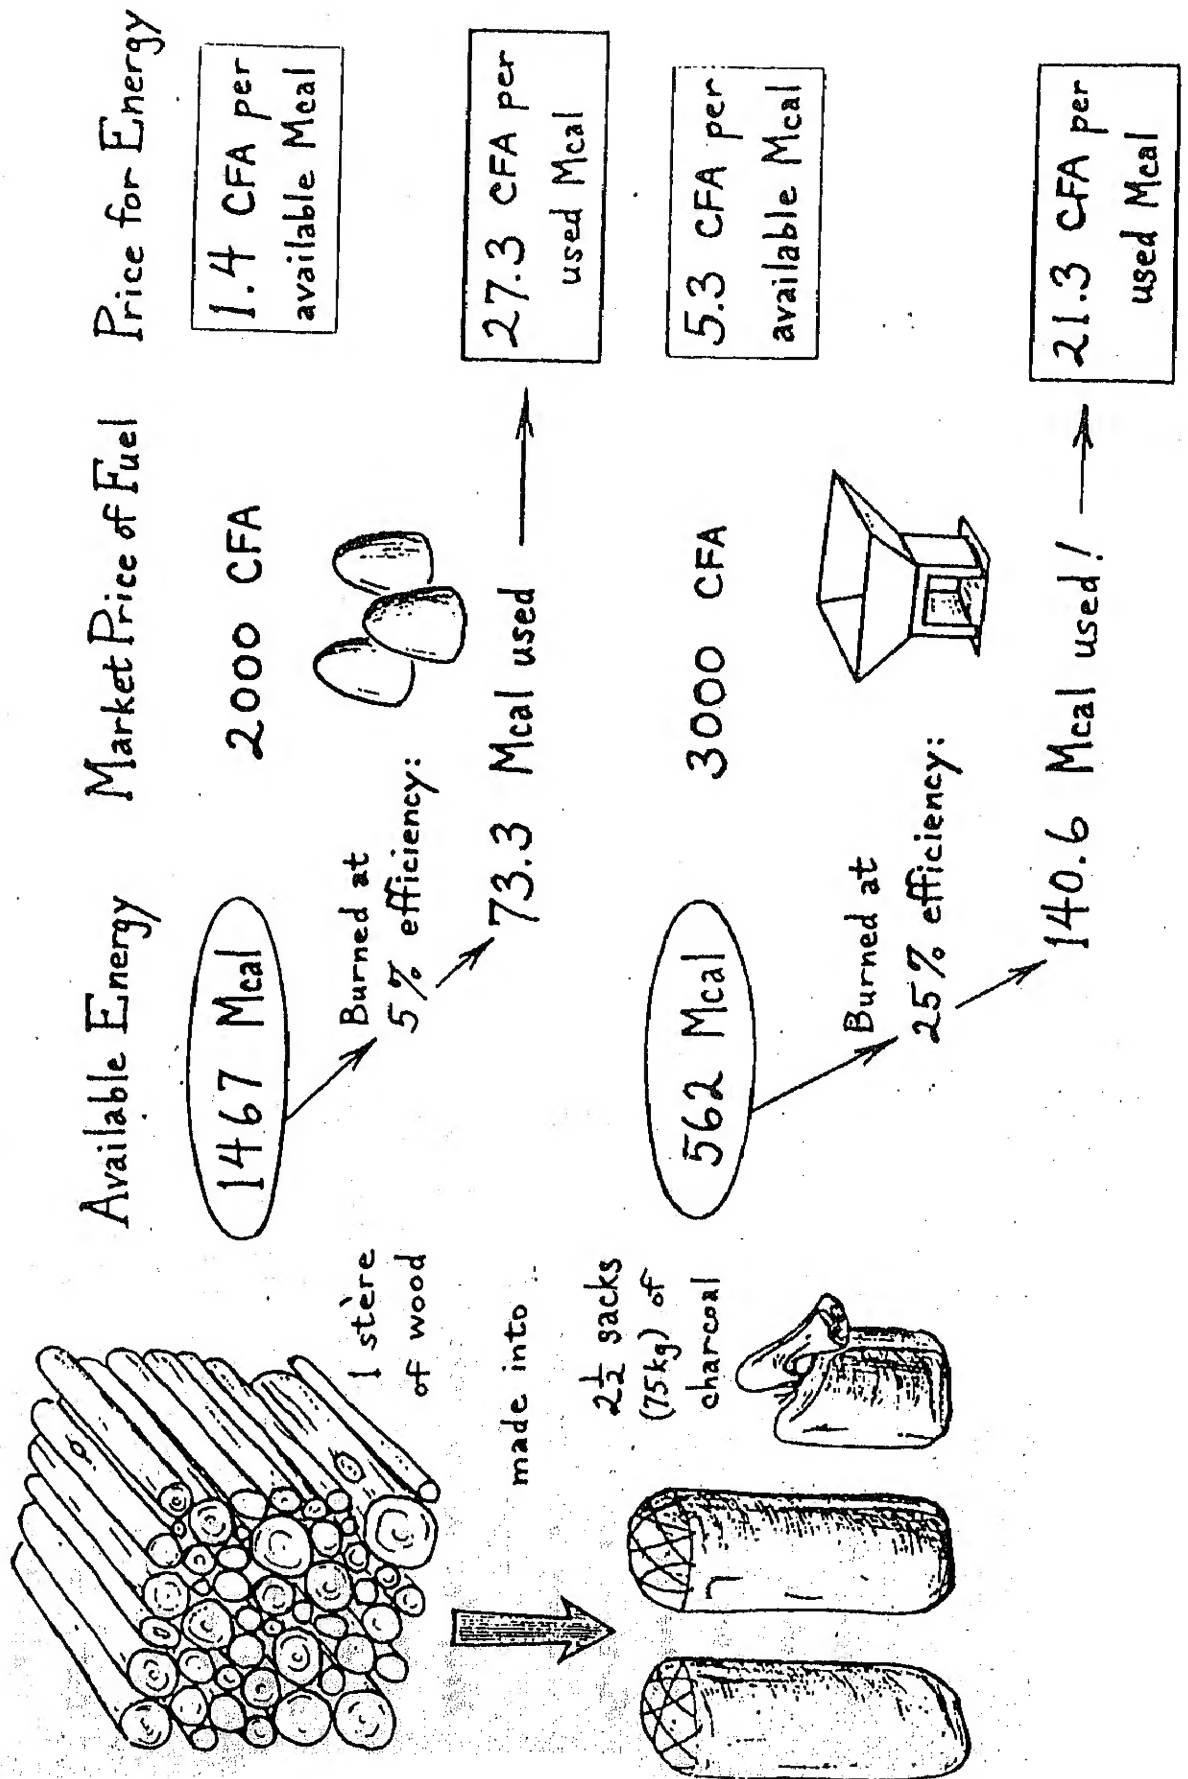 Available Energy
Market Price of Fuel
Price for Energy
1 stère
of wood
1467 Mcal
2000 CFA
1.4 CFA per
available Mcal
Burned at
5% efficiency:
73.3 Mcal used
27.3 CFA per
used Mcal
made into
2½ sacks
(75kg) of
charcoal
562 Mcal
3000 CFA
5.3 CFA per
available Mcal
Burned at
25% efficiency:
140.6 Mcal used!
21.3 CFA per
used Mcal